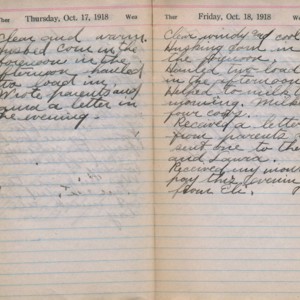 Ther Thursday, Oct. 17, 1918 Wea
Clear and warm.
Husked Corn in the
forenoon in the
afternoon hauled
in
Wrote parents and
a letter in
the evening.
Ther Friday, Oct. 18, 1918 Wea
Clear windy and cool
Husking Corn in
the forenoon.
Hauled two load
in the afternoon
Helped to milk
morning. Milk
four cows.
a letter
from parents
sent one to the
and Laura.
Received my month
pay this evening
from Eli.